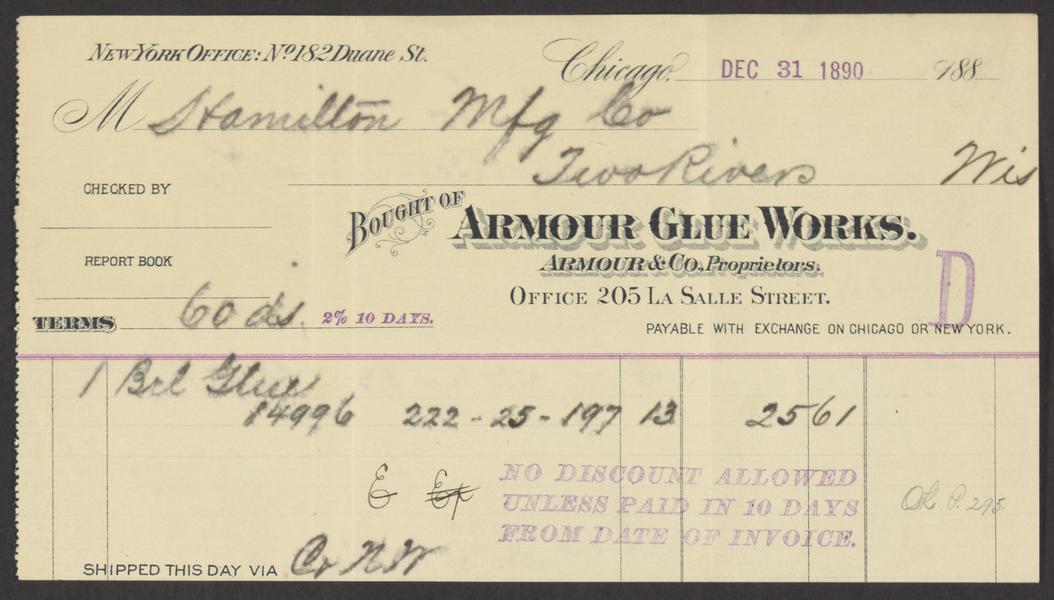 NEW YORK OFFICE: No 182 Duane St.
Chicago, DEC 31 1890 188
M Hamilton Mfg Co
Two Rivers Wis
CHECKED BY
BOUGHT OF ARMOUR GLUE WORKS.
ARMOUR & CO. Proprietors.
REPORT BOOK
OFFICE 205 LA SALLE STREET.
D
TERMS 60 ds. 2% 10 DAYS.
PAYABLE WITH EXCHANGE ON CHICAGO OR NEW YORK.
1 Brl Glue
14996 222 - 25 - 197 13 25 61
NO DISCOUNT ALLOWED
UNLESS PAID IN 10 DAYS
FROM DATE OF INVOICE.
E
Ok P. 295
SHIPPED THIS DAY VIA C & N W